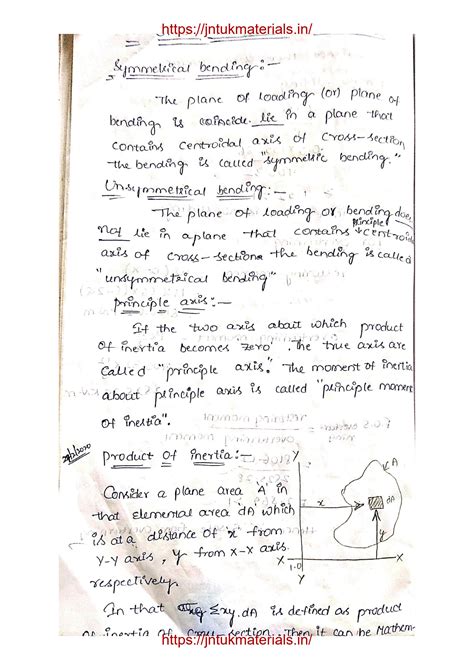 https://jntukmaterials.in/
Symmetrical bending:-
The plane of loading (or) plane of
bending is coincide lie in a plane that
contains centroidal axis of cross-section
the bending is called "symmetric bending."
Unsymmetrical bending:-
The plane of loading or bending does
Not lie in a plane that contains principle centroidal
axis of cross-section the bending is called
"unsymmetrical bending"
principle axis:-
If the two axis abait which product
of inertia becomes zero'. The true axis are
called "principle axis". The moment of inertia
about principle axis is called "principle moment
of inertia".
product of inertia:-
Consider a plane area 'A' in
that elemental area dA which
is at a distance of x from
y-y axis, y from x-x axis.
respectively.
In that Σxy.dA is defined as product
of inertia of cross-section. Then it can be Mathem-
Y
A
x
dA
y
X
1.0
X
Y
https://jntukmaterials.in/